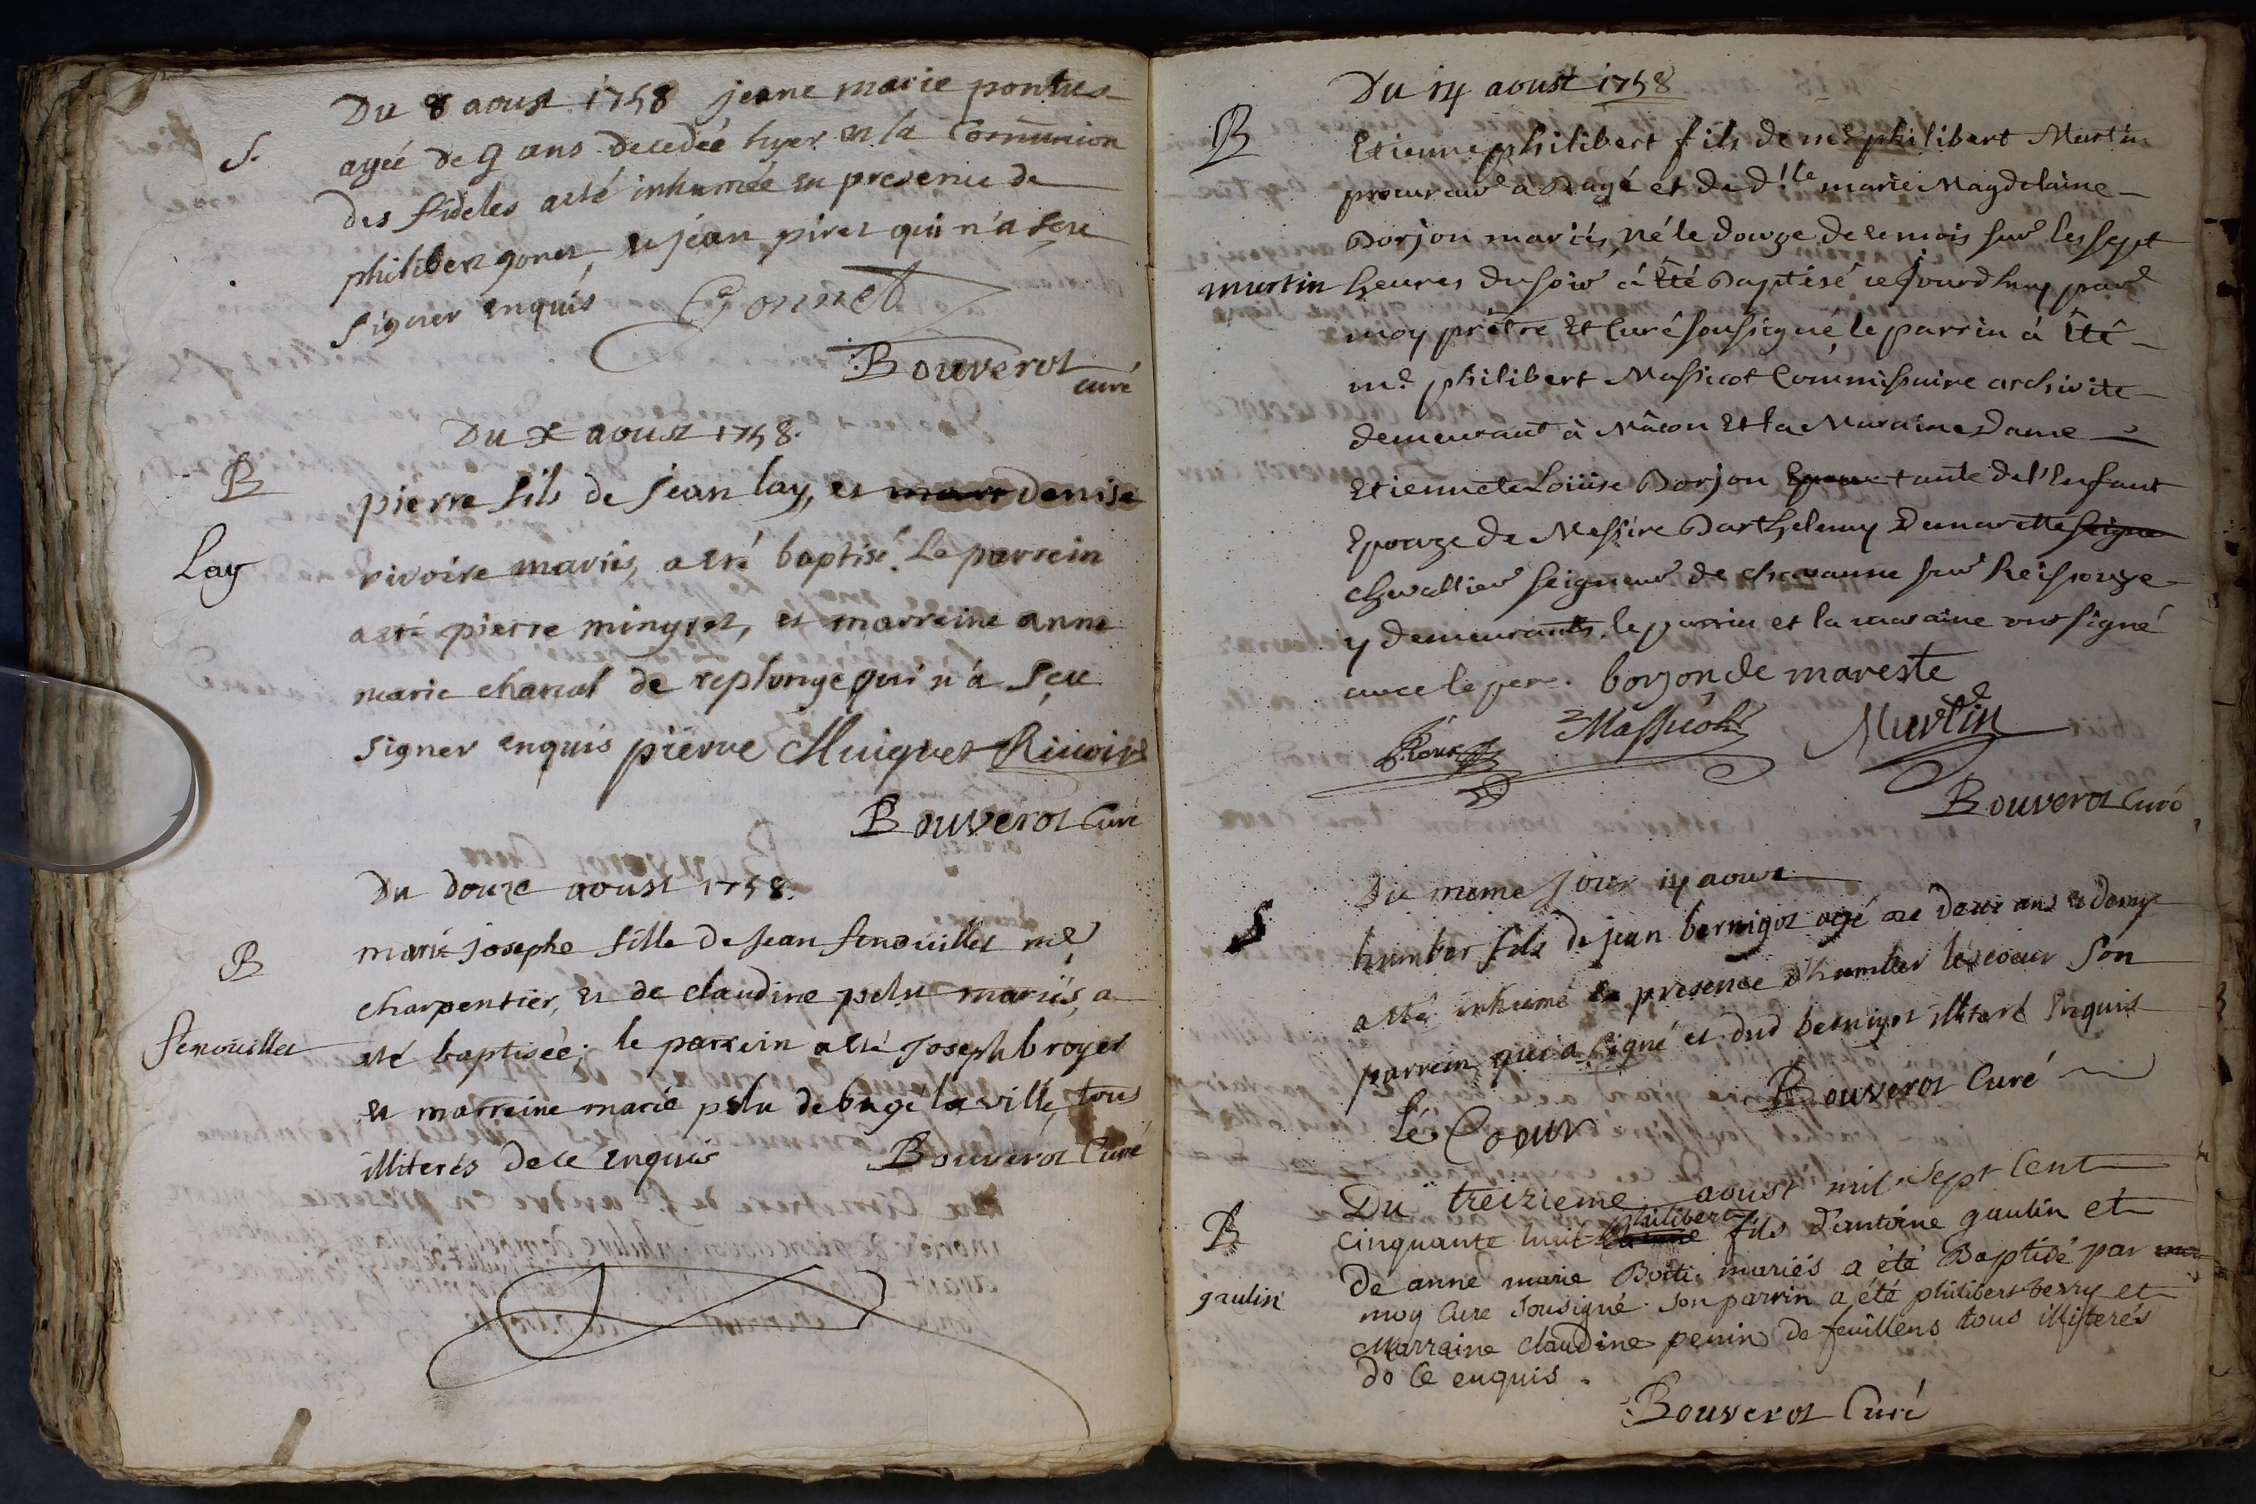 Du 8 aoust 1758 jeane marie pontus
S.
agée de 9 ans decedée hyer en la Communion
des fideles a eté inhumée en presence de
philibert gonet et jean piret qui n'a sçeu
signer enquis Gonnet
Bouverot
curé
Du X aoust 1758.
B
pierre fils de jean lay, et denise
Lay
rivoire mariés, a eté baptisé. Le parrein
a eté pierre minguet, et marreine anne
marie charcot de replonge qui n'a sçeu
signer enquis pierre Muiguet Rivoire
Bouverot Curé
Du douze aoust 1758.
B
marie josephe fille de jean fenouillet me
charpentier, et de claudine pelu mariés, a
fenouillet
eté baptisée; le parrein a eté joseph broyer
et marreine marie pelu de bagé la ville, tous
illiterés de ce enquis Bouverot Curé
Du 14 aoust 1758
B
Etienne philibert fils de me philibert Martin
procureur a Bagé et de d.lle marie Magdelaine
Borjon mariés, né le douze de ce mois sur les sept
martin
heures du soir à Eté Baptisé ce jourdhuy par
moy prêtre Et Curé soussigné, le parrin à Eté
me philibert Massicot Commissaire archiviste
demeurant à Mâcon Et la Maraine Dame
Etiennete Loüise Borjon tante de l'Enfant
Epouze de Messire Barthelemy Demareste
chevallier seigneur de chavanne sur Reissouze
y demeurants, le parrin et la maraine ont signé
avec le pere. borjon de mareste
Massicot Martin
Bouverot Curé
Du meme jour 14 aoust
S
humber fils de jean bernigot agé de deux ans et demy
a eté inhumé en presence d'humber lecoeur son
parrein qui a signé et dud bernigot illiteré Enquis
Bouverot Curé
Lé Coeur
Du treizieme aoust mil sept Cent
B
Cinquante huit philibert fils d'antoine gaulin et
de anne marie Boiti mariés a été Baptisé par
gaulin
moy Cure sousigné. son parrin a été philibert berry et
Marraine claudine perrin de feuillens tous illiterés
de Ce enquis.
Bouverot Curé